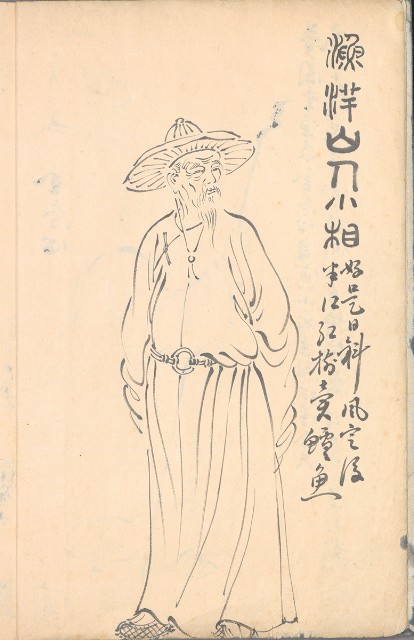 漁洋山人小相
好是日斜風定後
半江紅樹賣鱸魚